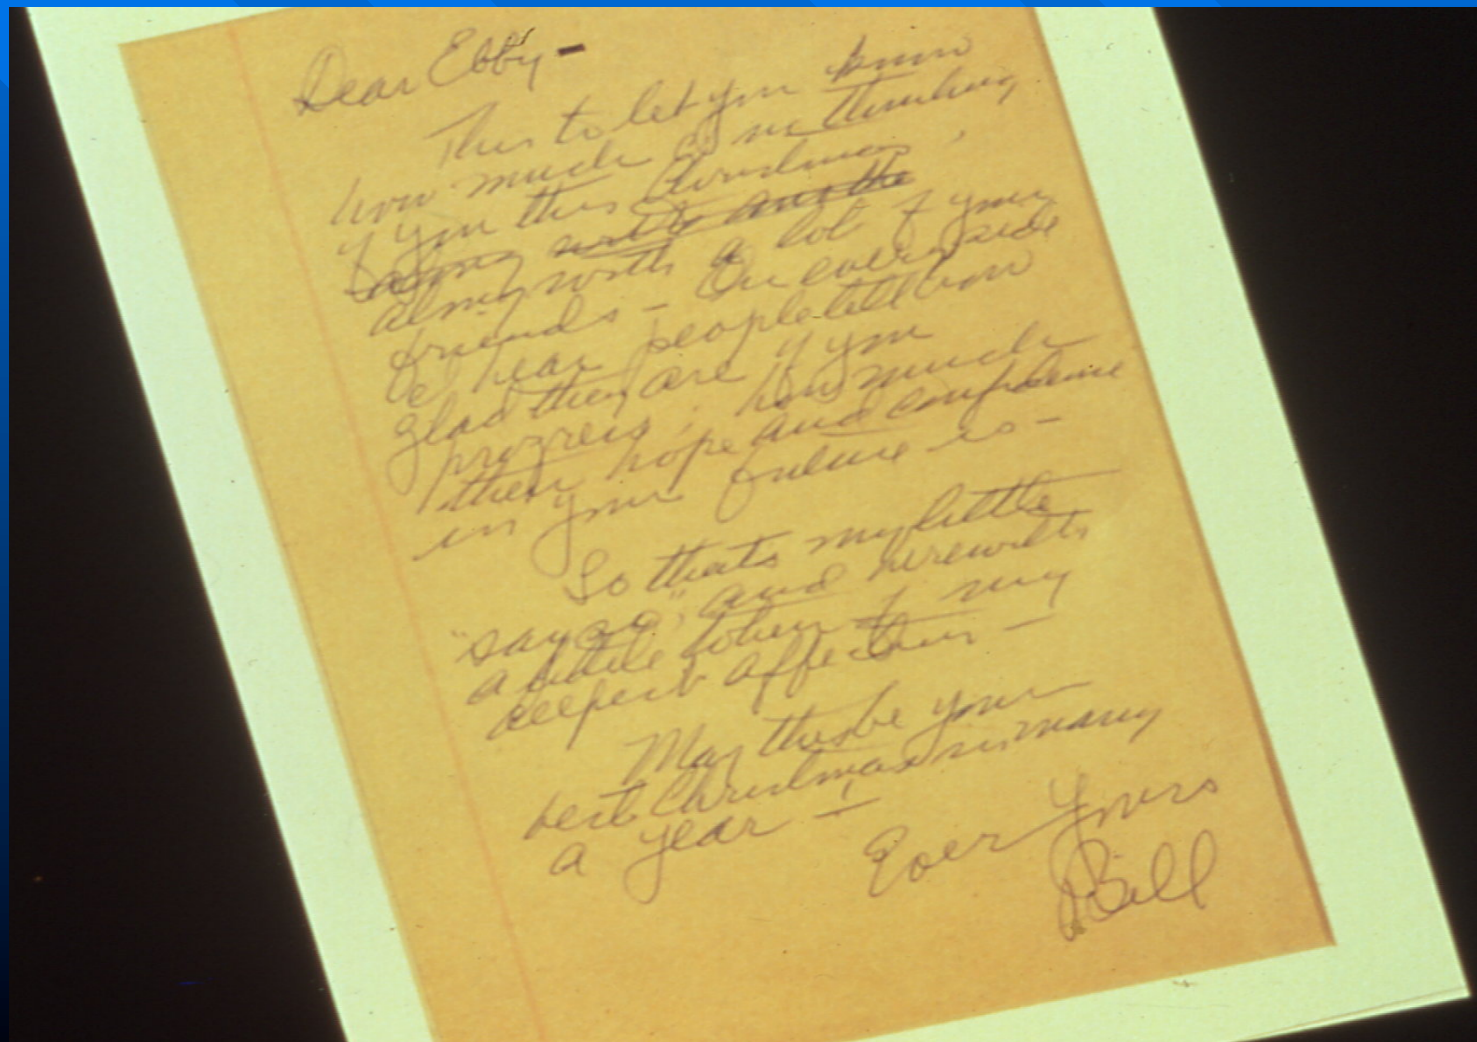 Dear Ebby –
This to let you know
how much I'm thinking
of you this Christmas,
along with a lot of your
friends – On every side
I hear people tell how
glad they are of your
progress; how much
their hope and confidence
in your future is –
So thats my little
"say so", and herewith
a little token of my
deepest affection –
May this be your
best Christmas in many
a year –
Ever Yours
Bill